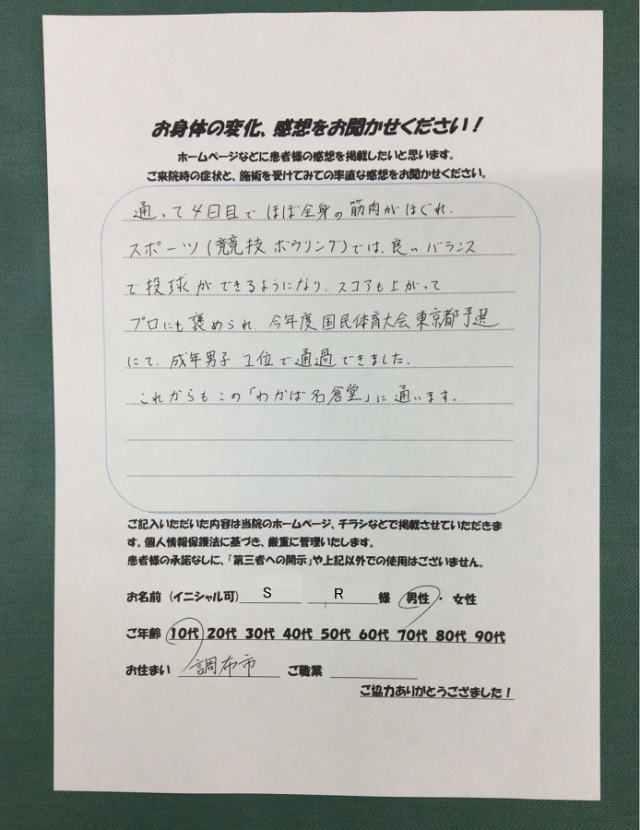 お身体の変化、感想をお聞かせください！
ホームページなどに患者様の感想を掲載したいと思います。
ご来院時の症状と、施術を受けてみての率直な感想をお聞かせください。
通って4日目でほぼ全身の筋肉がほぐれ、
スポーツ(競技ボウリング)では、良いバランス
で投球ができるようになり、スコアも上がって
プロにも褒められ、今年度国民体育大会東京都予選
にて、成年男子1位で通過できました。
これからもこの「わかば名倉堂」に通います。
ご記入いただいた内容は当院のホームページ、チラシなどで掲載させていただきま
す。個人情報保護法に基づき、厳重に管理いたします。
患者様の承諾なしに、「第三者への開示」や上記以外での使用はございません。
お名前（イニシャル可） S R 様 男性・女性
ご年齢 10代 20代 30代 40代 50代 60代 70代 80代 90代
お住まい 調布市 ご職業
ご協力ありがとうござました！